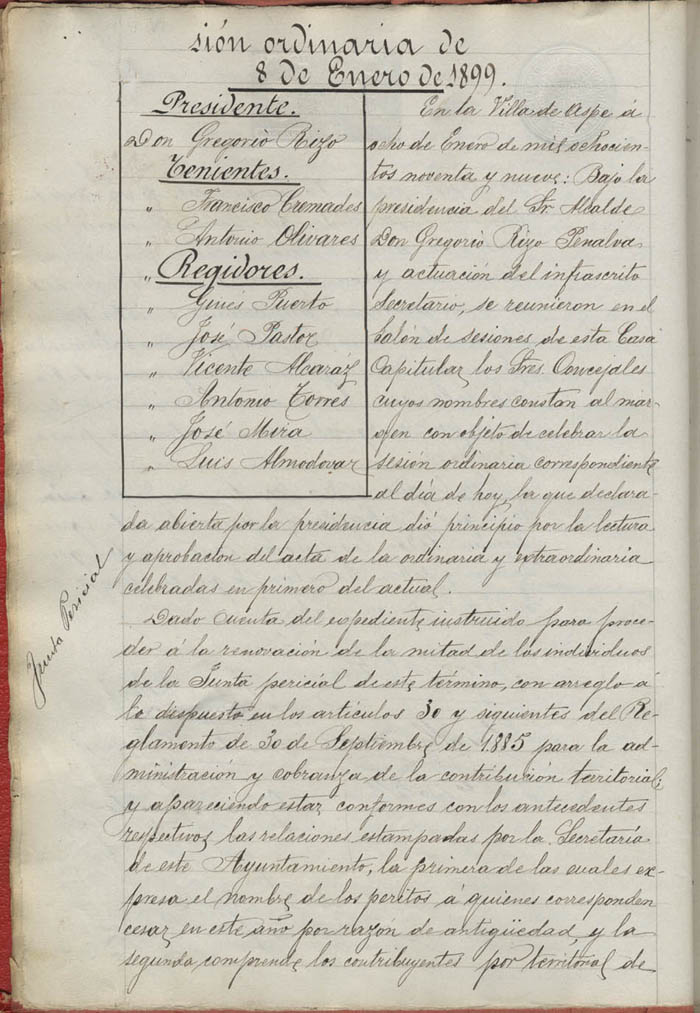 sión ordinaria de
8 de Enero de 1899.
Presidente.
Don Gregorio Rizo
Tenientes.
„ Francisco Cremades
„ Antonio Olivares
„ Regidores.
„ Ginés Puerto
„ José Pastor
„ Vicente Alcaráz
„ Antonio Torres
„ José Mira
„ Luis Almodovar
En la Villa de Aspe á
ocho de Enero de mil ochocien-
tos noventa y nueve: Bajo la
presidencia del Sr. Alcalde
Don Gregorio Rizo Penalva
y actuación del infrascrito
Secretario, se reunieron en el
Salón de sesiones de esta Casa
Capitular los Sres. Concejales
cuyos nombres constan al mar-
gen con objeto de celebrar la
sesión ordinaria correspondiente
al día de hoy, la que declara-
da abierta por la presidencia dió principio por la lectura
y aprobación del acta de la ordinaria y extraordinaria
celebradas en primero del actual.
Junta Pericial
Dado cuenta del expediente instruido para proce-
der á la renovación de la mitad de los individuos
de la Junta pericial de este término, con arreglo á
lo dispuesto en los artículos 30 y siguientes del Re-
glamento de 30 de Septiembre de 1885 para la ad-
ministración y cobranza de la contribución territorial;
y apareciendo estar conformes con los antecedentes
respectivos las relaciones estampadas por la Secretaría
de este Ayuntamiento, la primera de las cuales ex-
presa el nombre de los peritos á quienes corresponden
cesar en este año por razón de antigüedad, y la
segunda comprende los contribuyentes por territorial de